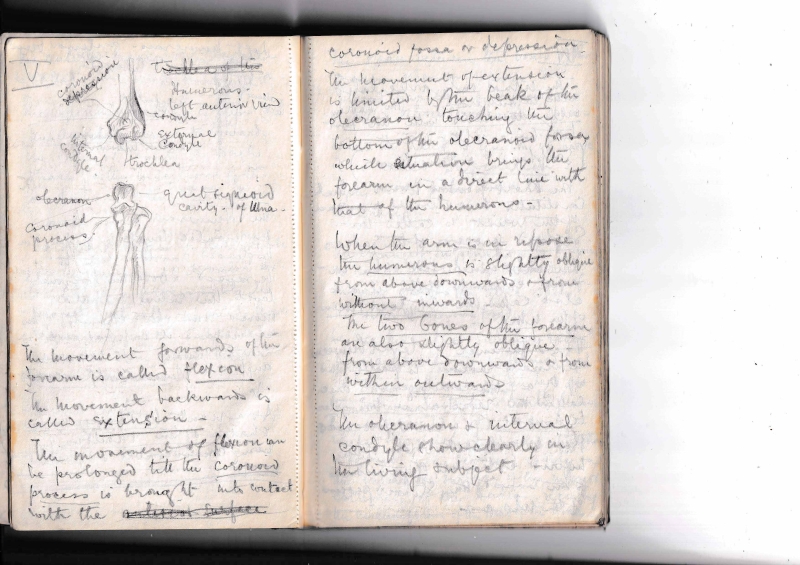 V
coronoid
depression
Trochlea of the
Humerous.
left anterior view
condyle
External
Condyle
internal
Condyle
trochlea
olecranon
great sigmoid
cavity - of Ulna -
coronoid
process.
The movement forwards of the
forearm is called flexeon
The movement backwards is
called extension -
The movement of flexeon can
be prolonged till the coronoid
process is brought into contact
with the anterior surface
coronoid fossa or depression
The movement of extension
is limited by the beak of the
olecranon touching the
bottom of the olecranoid fossa
while situation brings the
forearm in a direct line with
that of the humerous -
When the arm is in repose
the humerous is slightly oblique
from above downwards & from
without inwards -
The two bones of the forearm
are also slightly oblique
from above downwards & from
within outwards
The olecranon & internal
condyle show clearly in
the living subject